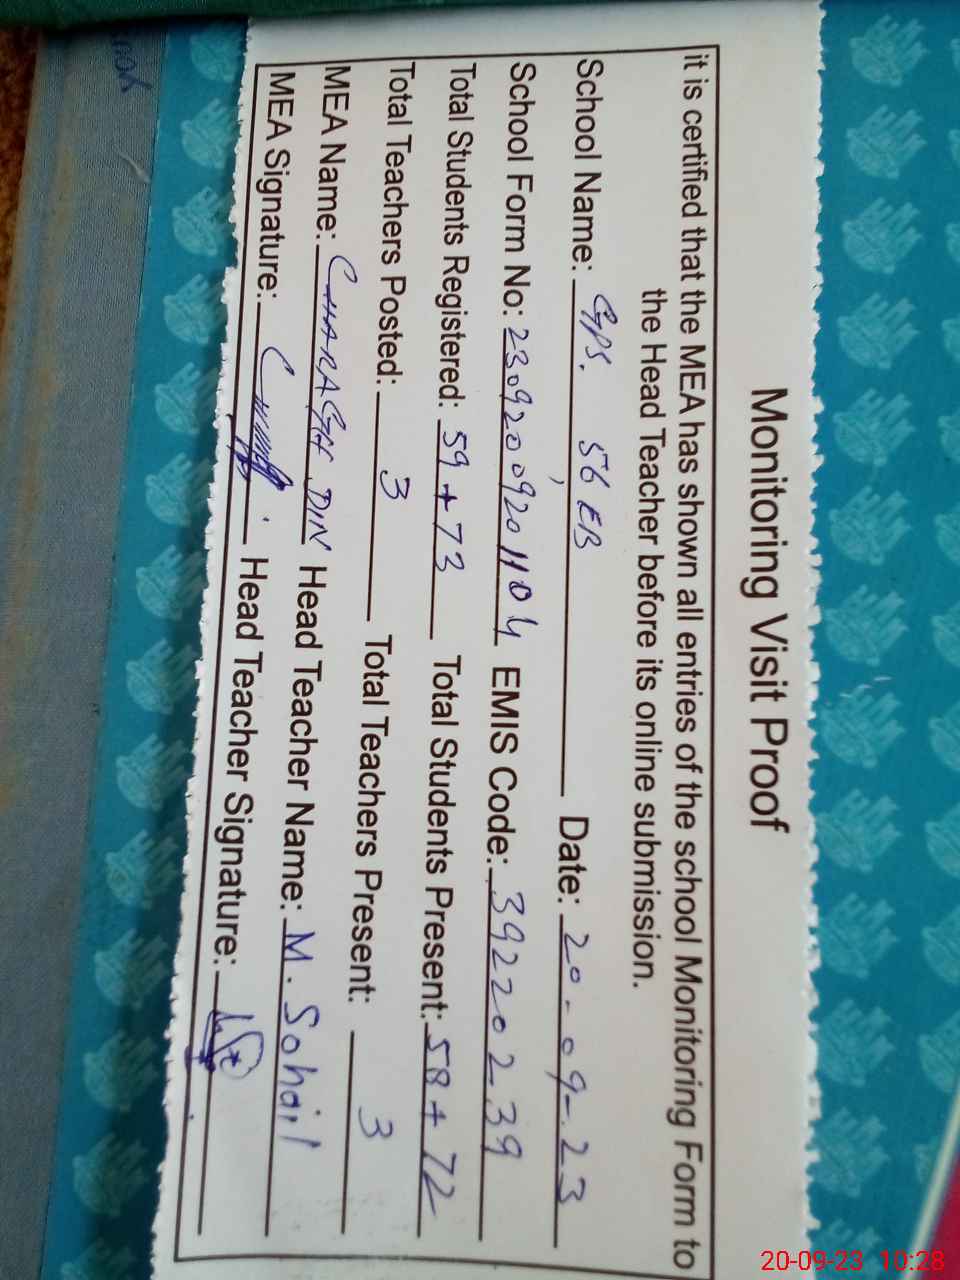 Monitoring Visit Proof
it is certified that the MEA has shown all entries of the school Monitoring Form to
the Head Teacher before its online submission.
School Name: GPS. 56 EB Date: 20-09-23
School Form No: 230920092011104 EMIS Code: 39220239
Total Students Registered: 59+73 Total Students Present: 58+72
Total Teachers Posted: 3 Total Teachers Present: 3
MEA Name: CHARAGH DIN Head Teacher Name: M. Sohail
MEA Signature: Head Teacher Signature:
20-09-23 10:28